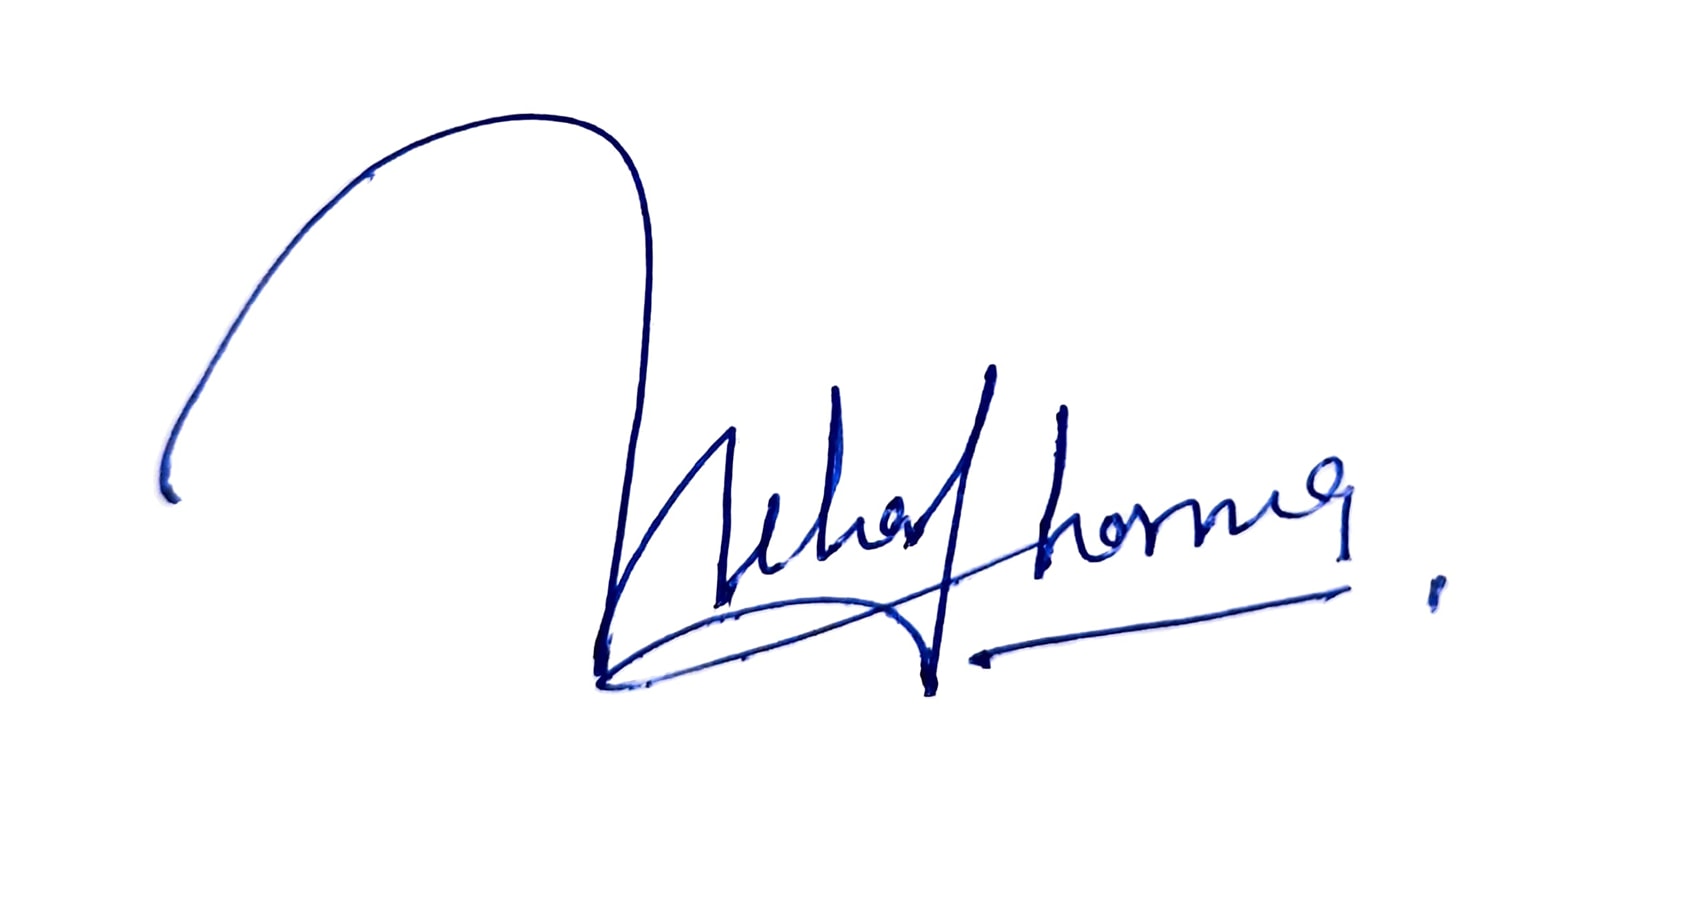 Neha Sharma